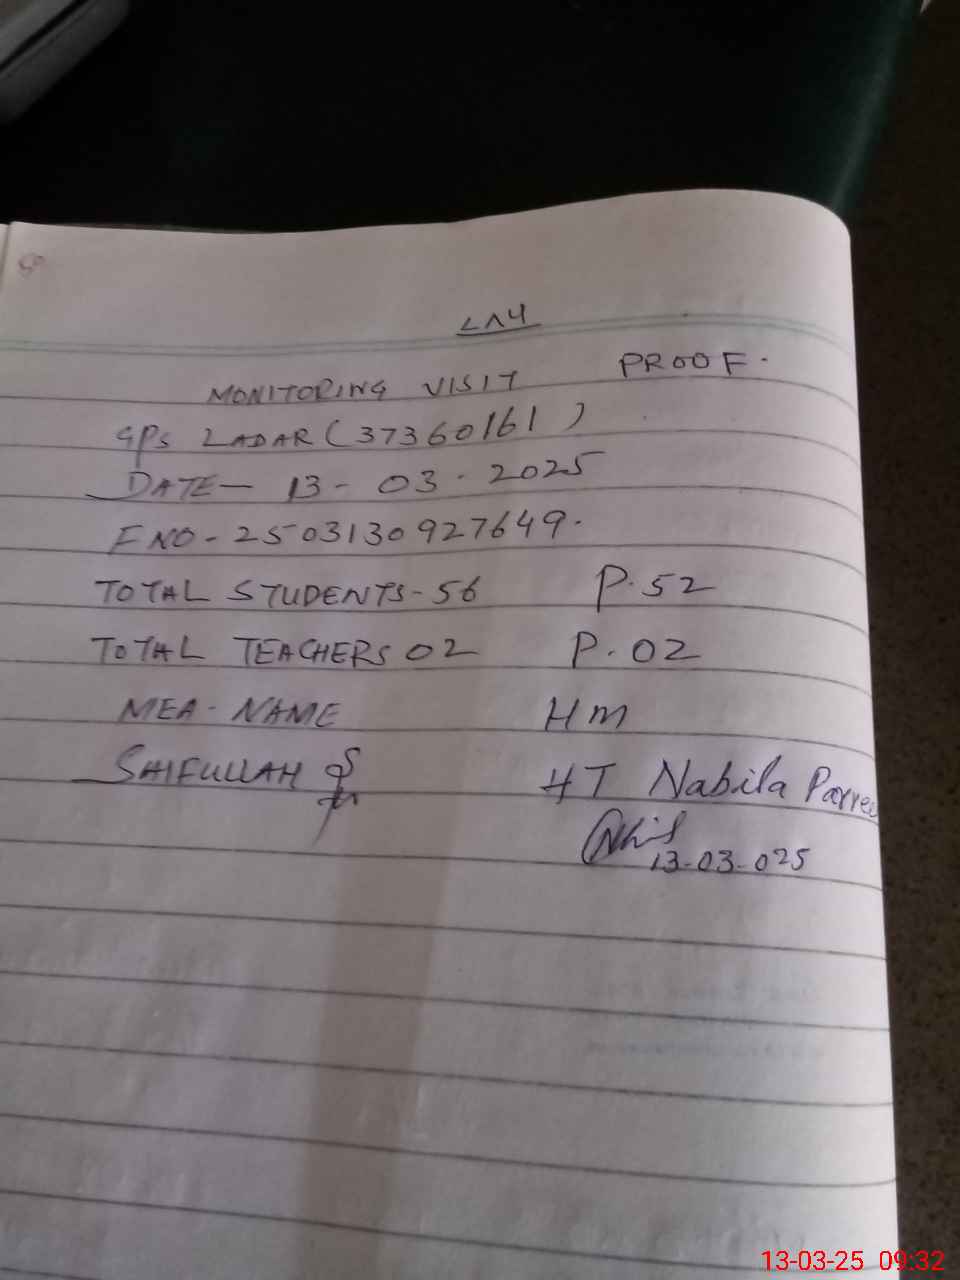 MONITORING VISIT PROOF.
GPS LADAR (37360161)
DATE - 13 - 03 - 2025
FNO - 2503130927649.
TOTAL STUDENTS - 56 P. 52
TOTAL TEACHERS 02 P. 02
MEA - NAME HM
SAIFULLAH HT Nabila
13-03-025
13-03-25 09:32